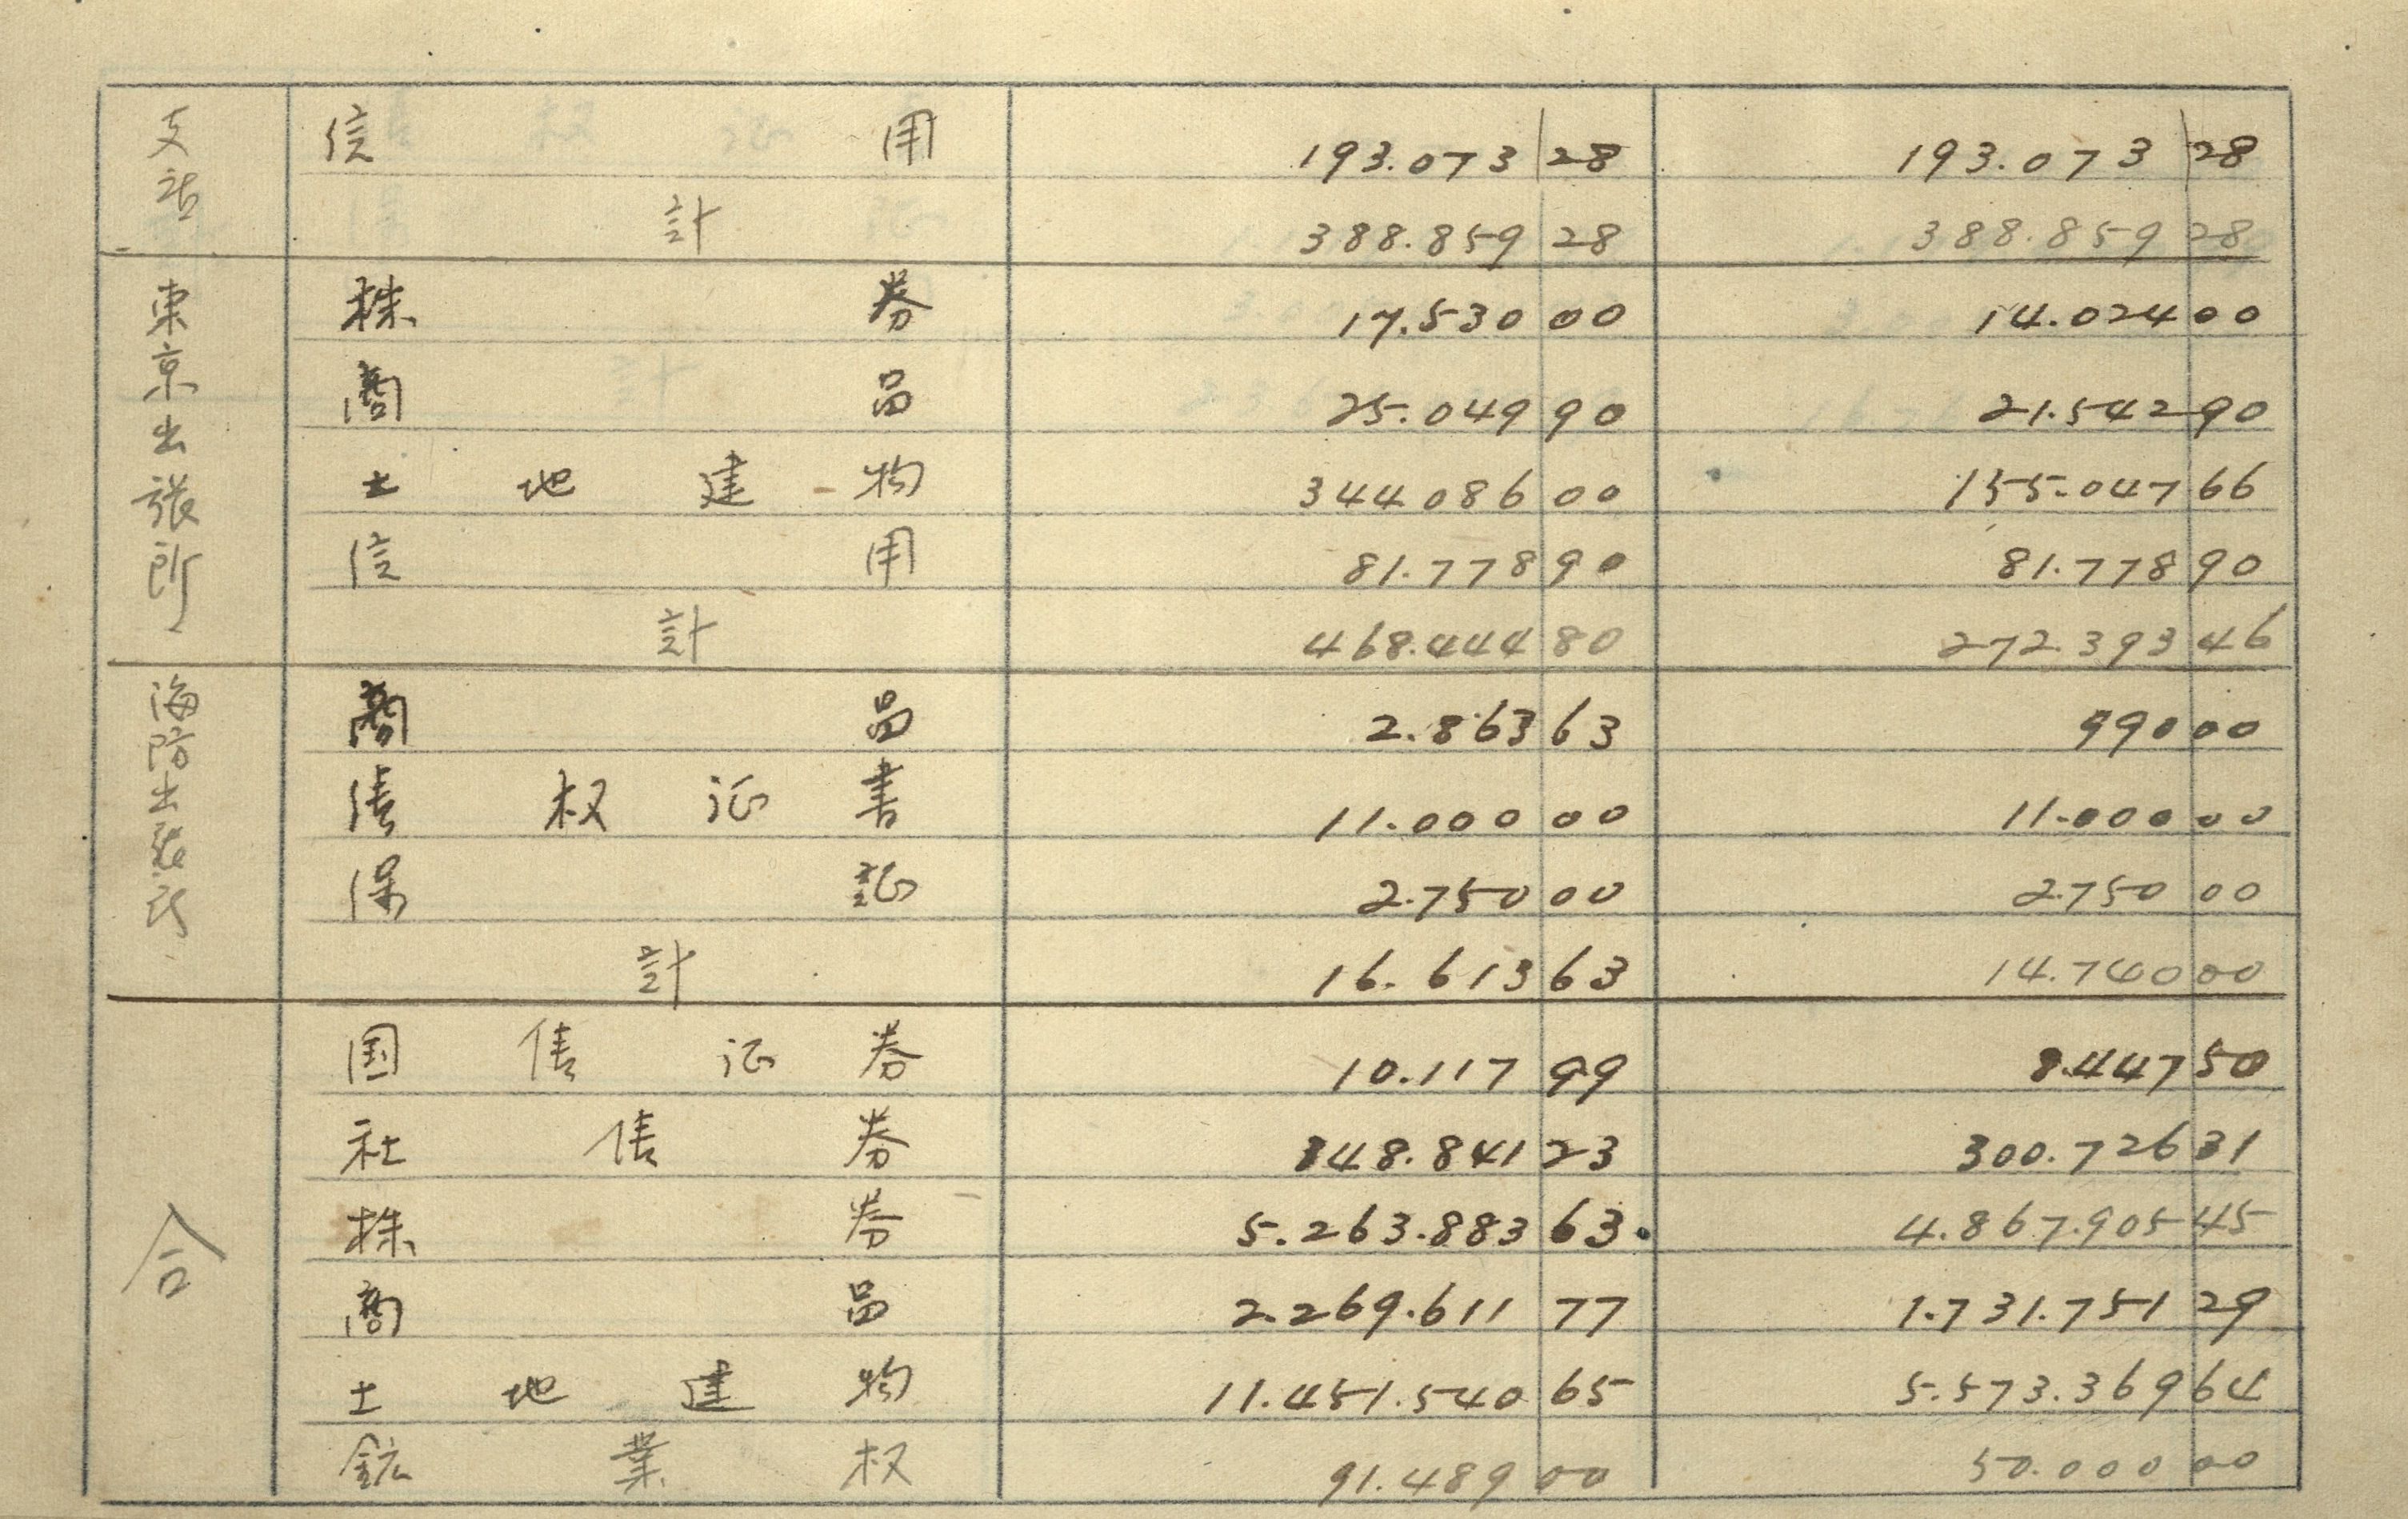 支店 信用 193.073 28 193.073 28
計 388.859 28 388.859 28
東京出張所 株券 17.530 00 14.024 00
商品 25.049 90 21.542 90
土地建物 344.086 00 155.047 66
信用 81.778 90 81.778 90
計 468.444 80 272.393 46
海防出張所 商品 2.863 63 990 00
債权証書 11.000 00 11.000 00
保証 2.750 00 2.750 00
計 16.613 63 14.740 00
合 国債証券 10.117 99 8.447 50
社債券 348.841 23 300.726 31
株券 5.263.883 63 4.867.905 45
商品 2.269.611 77 1.731.751 29
土地建物 11.451.540 65 5.573.369 64
鉱業权 91.489 00 50.000 00